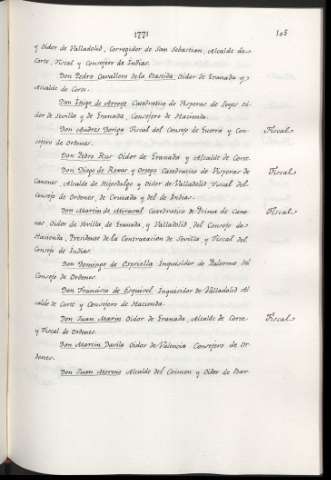 1771 105
y Oidor de Valladolid, Corregidor de San Sebastian, Alcalde de
Corte, Fiscal y Consejero de Indias.
Don Pedro Cavallero de la Oidor de Granada y
Alcalde de Corte.
Don Iñigo de Arroyo Catedratico de Visperas de Leyes Oi-
dor de Sevilla y de Granada Consejero de Hacienda.
Don Andres Fiscal del Consejo de Guerra y Con- Fiscal
sejero de Ordenes.
Don Pedro Oidor de Granada y Alcalde de Corte.
Don Diego de y Ortega Catedratico de Visperas de Fiscal
Canones, Alcalde de Hijosdalgo y Oidor de Valladolid Fiscal del
Consejo de Ordenes, de Cruzada y del de Indias.
Don Martin de Miraval Catedratico de Prima de Cano- Fiscal
nes Oidor de Sevilla de Granada, y Valladolid, del Consejo de
Hacienda, Presidente de la Contratacion de Sevilla y Fiscal del
Consejo de Indias.
Don Domingo de Espriella Inquisidor de Palermo del
Consejo de Ordenes
Don Francisco de Esquivel Inquisidor de Valladolid Al-
calde de Corte y Consejero de Hacienda.
Don Juan Marin Oidor de Granada, Alcalde de Corte Fiscal
y Fiscal de Ordenes.
Don Martin Davila Oidor de Valencia Consejero de Or-
denes.
Don Juan Moreno Alcalde del Crimen y Oidor de Bar-